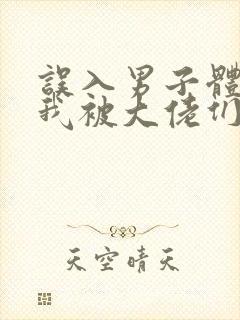 誤入男子體
我被大佬们
天空晴天